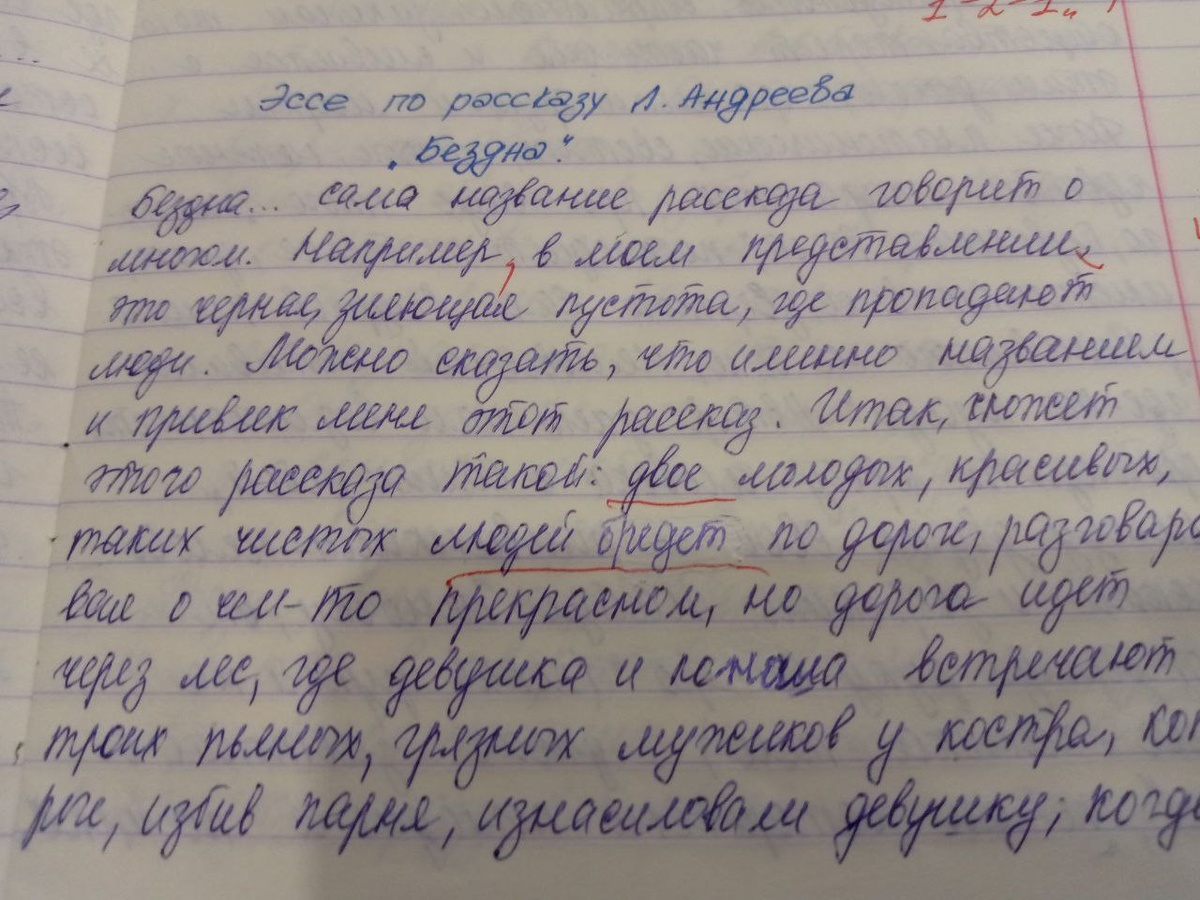 1-2-1
Эссе по рассказу Л. Андреева
„Бездна“.
Бездна... сама название рассказа говорит о
многом. Например, в моем представлении,
это черная, зияющая пустота, где пропадают
люди. Можно сказать, что именно названием
и привлек меня этот рассказ. Итак, сюжет
этого рассказа такой: двое молодых, красивых,
таких чистых людей бредет по дороге, разговари
вая о чем-то прекрасном, но дорога идет
через лес, где девушка и юноша встречают
троих пьяных, грязных мужиков у костра, кот
рые, избив парня, изнасиловали девушку; когда